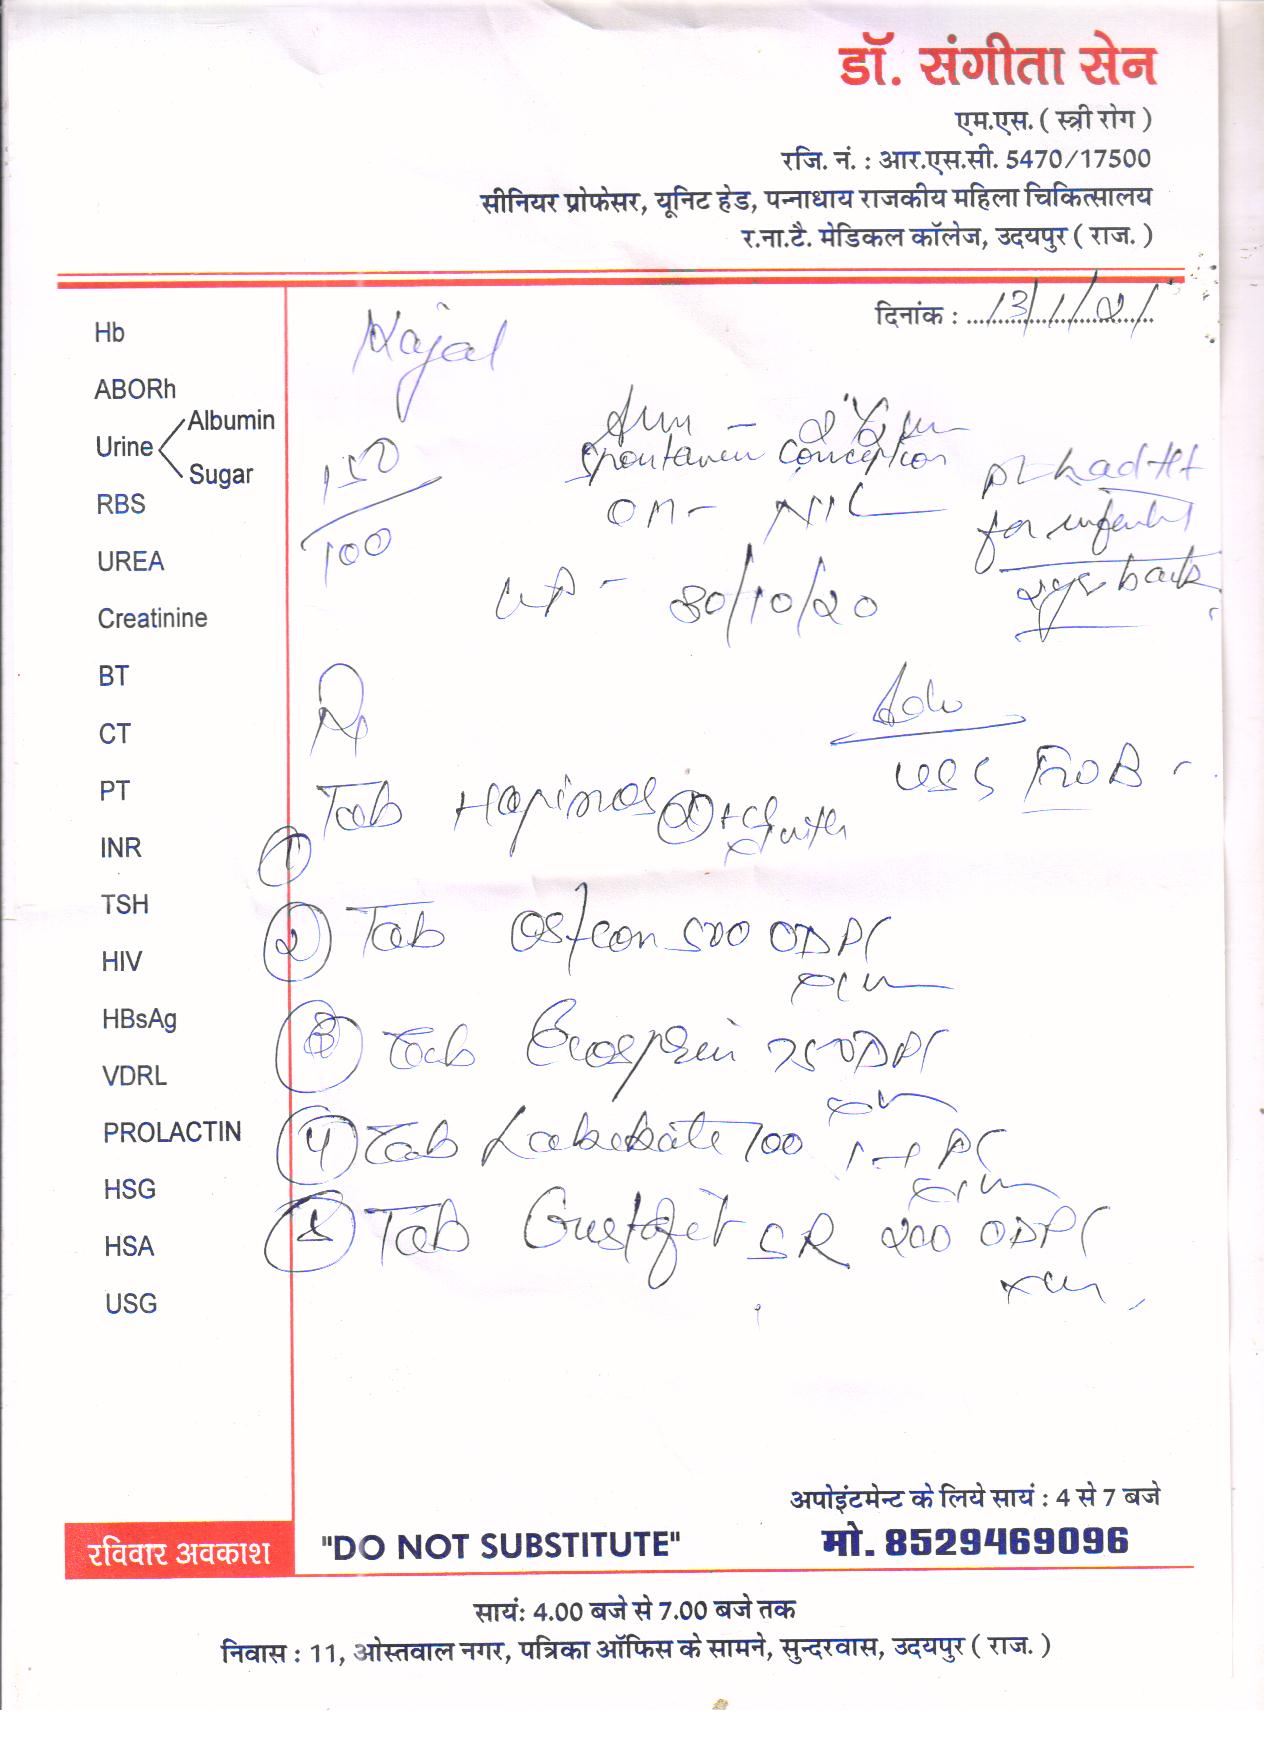 डॉ. संगीता सेन
एम.एस. ( स्त्री रोग )
रजि. नं. : आर.एस.सी. 5470/17500
सीनियर प्रोफेसर, यूनिट हेड, पन्नाधाय राजकीय महिला चिकित्सालय
र.ना.टै. मेडिकल कॉलेज, उदयपुर ( राज. )
दिनांक : 13/1/21
Kajal
Hb
ABORh
Urine Albumin
Sugar
RBS
UREA
Creatinine
BT
CT
PT
INR
TSH
HIV
HBsAg
VDRL
PROLACTIN
HSG
HSA
USG
150/100
spontaneous conception
OH - NIL
pt had ttt
for infertility
2 yrs back
30/10/20
Adv
Tab
(1)
(2) Tab 500 OD PC
(3) Tab Ecosprin 75 OD PC
(4) Tab Labebate 100 PC
(5) Tab SR 200 OD PC
अपोइंटमेन्ट के लिये सायं : 4 से 7 बजे
रविवार अवकाश
"DO NOT SUBSTITUTE"
मो. 8529469096
सायं: 4.00 बजे से 7.00 बजे तक
निवास : 11, ओस्तवाल नगर, पत्रिका ऑफिस के सामने, सुन्दरवास, उदयपुर ( राज. )